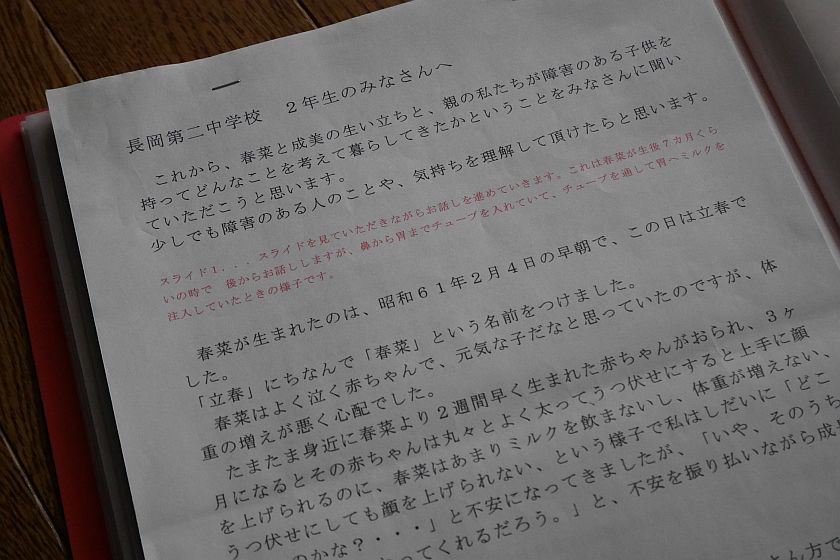 長岡第二中学校　２年生のみなさんへ
これから、春菜と成美の生い立ちと、親の私たちが障害のある子供を
持ってどんなことを考えて暮らしてきたかということをみなさんに聞い
ていただこうと思います。
少しでも障害のある人のことや、気持ちを理解して頂けたらと思います。
スライド１．．．スライドを見ていただきながらお話しを進めていきます。これは春菜が生後７カ月くら
いの時で　後からお話ししますが、鼻から胃までチューブを入れていて、チューブを通して胃へミルクを
注入していたときの様子です。
春菜が生まれたのは、昭和６１年２月４日の早朝で、この日は立春で
した。
「立春」にちなんで「春菜」という名前をつけました。
春菜はよく泣く赤ちゃんで、元気な子だなと思っていたのですが、体
重の増えが悪く心配でした。
たまたま身近に春菜より２週間早く生まれた赤ちゃんがおられ、３ヶ
月になるとその赤ちゃんは丸々とよく太ってうつ伏せにすると上手に顔
を上げられるのに、春菜はあまりミルクを飲まないし、体重が増えない、
うつ伏せにしても顔を上げられない、という様子で私はしだいに「どこ
のかな？・・・」と不安になってきましたが、「いや、そのうち
ってくれるだろう。」と、不安を振り払いながら成長